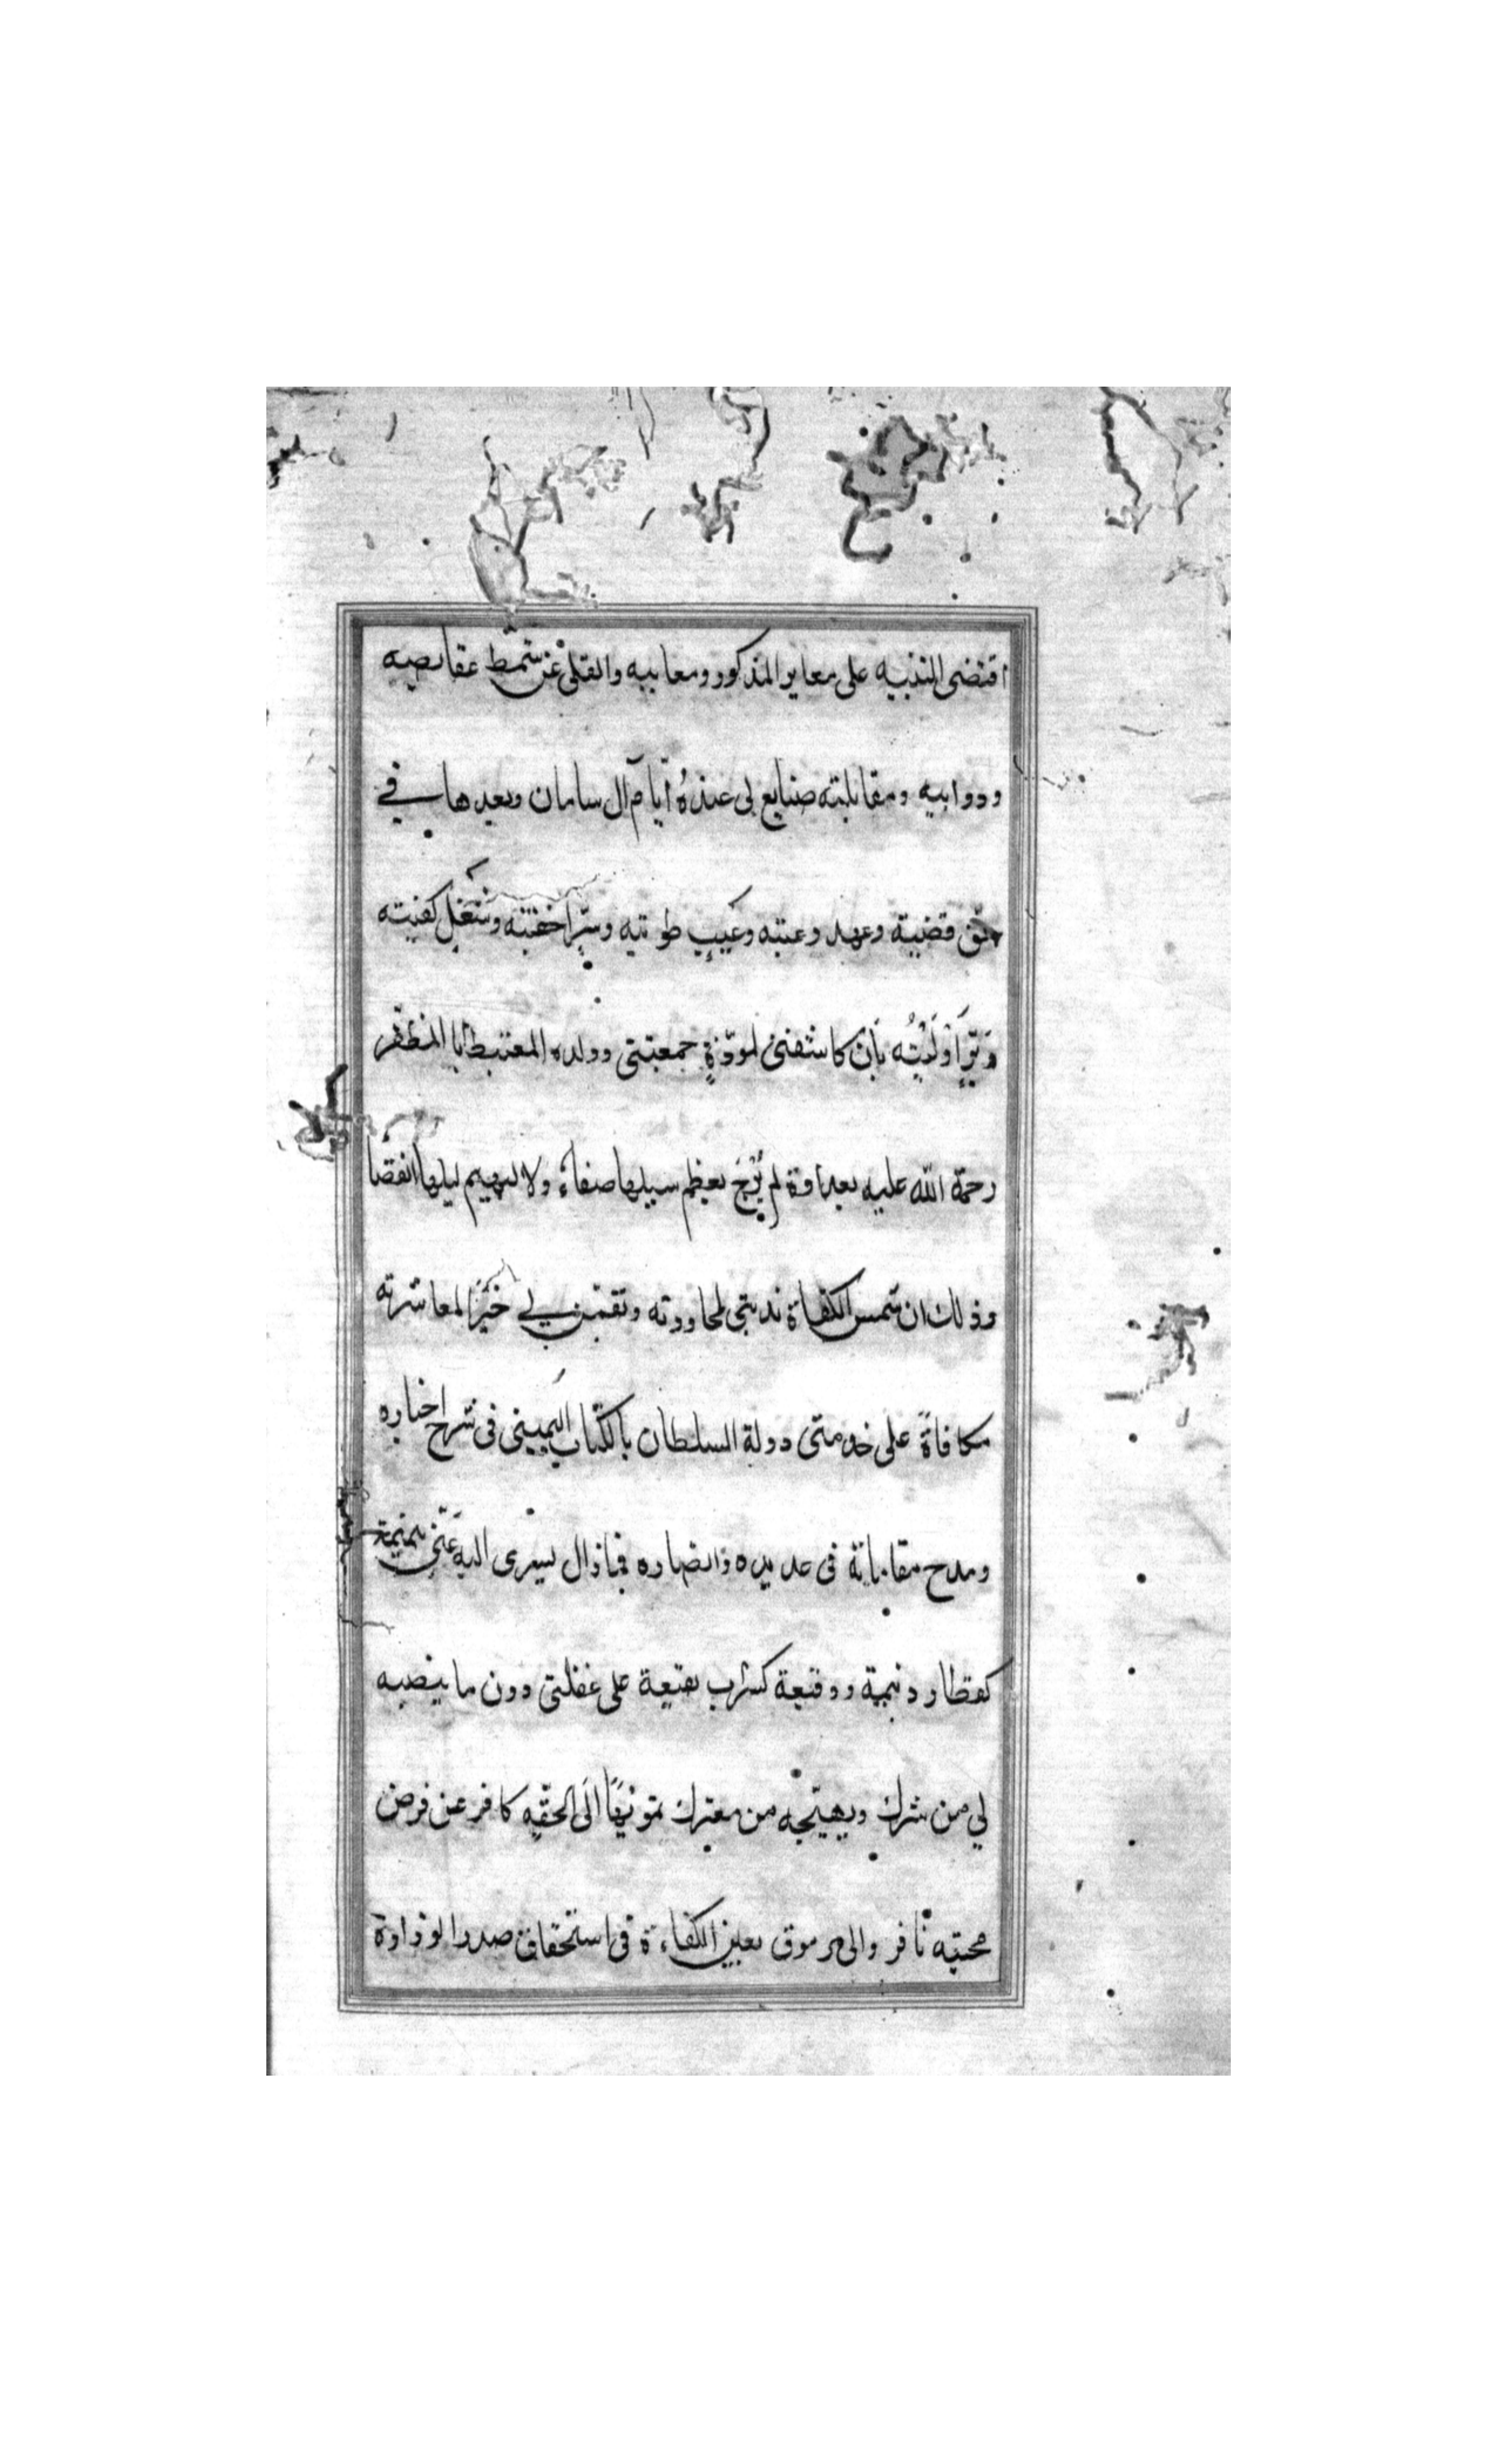 اقتضى التنبيه على معاير المذكور ومعايبه والفلى عن شمط عقايصه
وذوابيه ومقابلته صنايع لى عنده ايام آل سامان وبعدها في
حق قضيته وعهد وعيته وعيب طويته وسر اخفيته وشغل كفيته
وبر اوليته بان كاشفنى لمودة جمعتنى وولده المعتبط ابا المظفر
رحمة الله عليه بعداوة لم يرج بعظم سيلها صفاء ولا لبهيم ليلها انفضا
وذلك ان شمس الكفاة ندبنى لمجاورته وتقمن بي خيرا لمعاشرته
مكافاة على خدمتى دولة السلطان بالكتاب اليمينى فى شرح اخباره
ومدح مقاماته فى عديده وانصاره فما زال يسرى اليه عنى بنميمة
كقطار ديمة ووقيعة كسراب بقيعة على غفلتى دون ما ينصبه
لي من شرك ويهيجه من معترك تمويها الى الحقه كافر عن فرض
محبته نافر والى مرموق بعين الكفاءة فى استحقاق صدر الوزارة